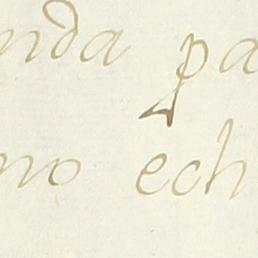 nda pa
no ech